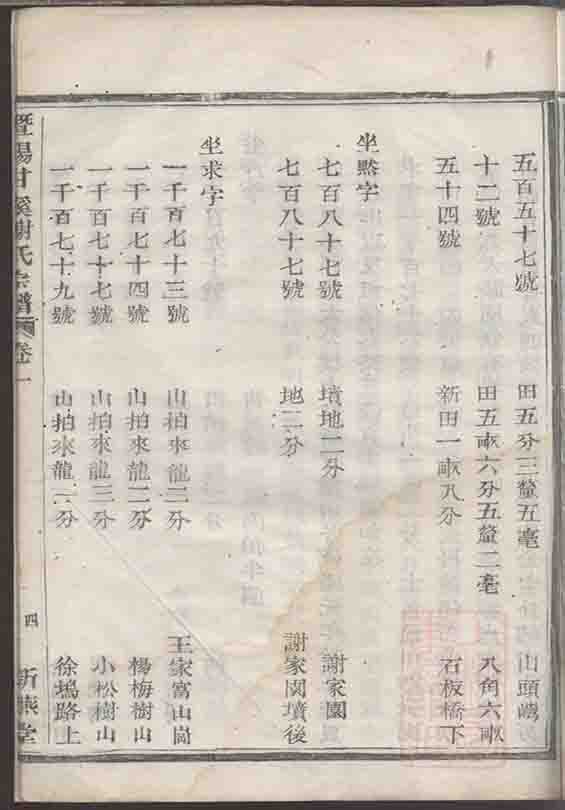 五百五十七號 田五分三釐五毫 山頭
十二號 田五畝六分五釐二毫 八角六畝
五十四號 新田一畝八分 石板橋下
坐㸃字
七百八十七號 墳地二分 謝家園
七百八十七號 地二分 謝家園墳後
坐求字
一千百七十三號 山拍來龍二分 王家富山崗
一千百七十四號 山拍來龍二分 楊梅樹山
一千百七十七號 山拍來龍三分 小松樹山
一千百七十九號 山拍來龍二分 徐塢路上
暨陽甘溪謝氏宗譜 卷一 四